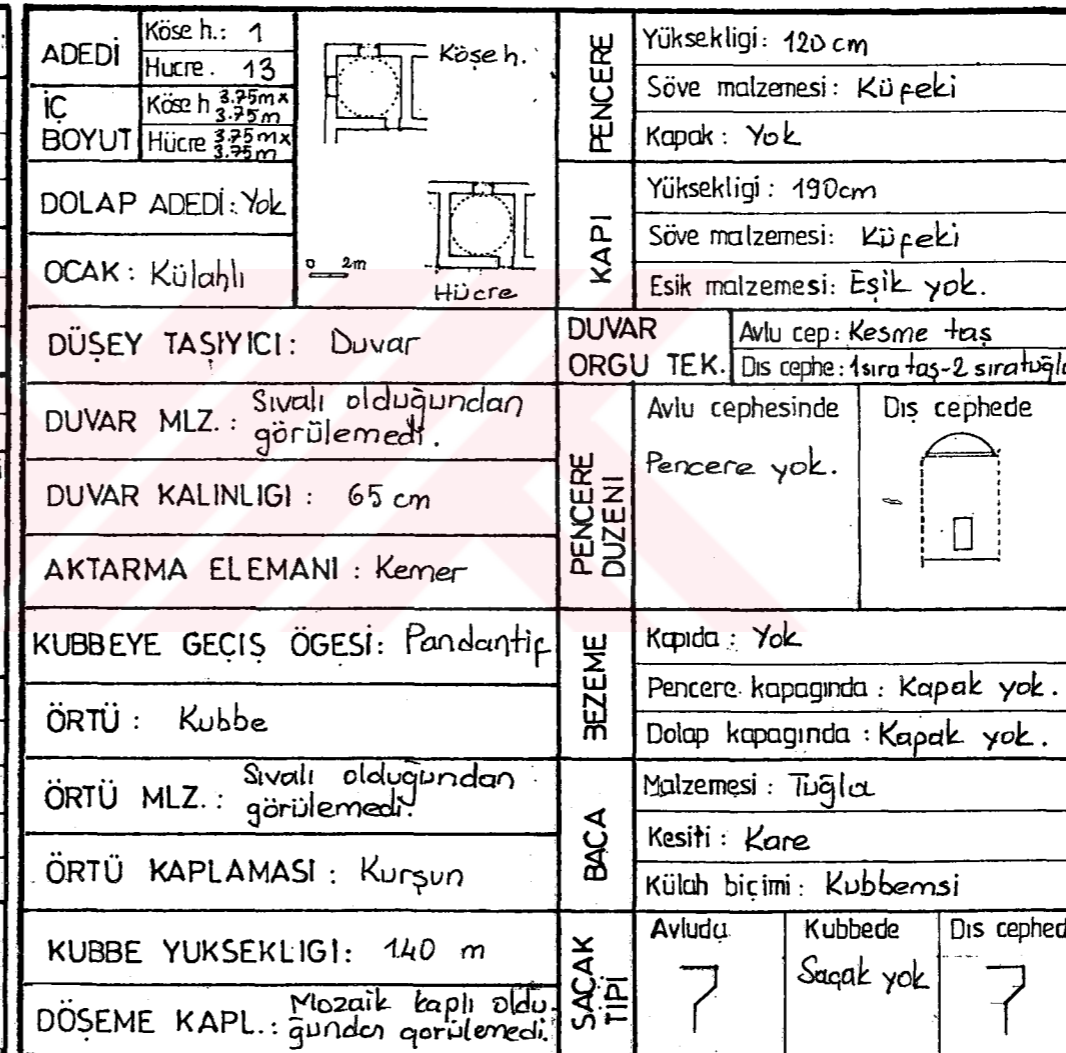 ADEDİ
Köse h.: 1
Hucre. 13
İÇ BOYUT
Köse h 3.75m x 3.75m
Hücre 3.75m x 3.75m
DOLAP ADEDİ: Yok
OCAK: Külahlı
Köşe h.
0 2m
Hücre
DÜŞEY TAŞIYICI: Duvar
DUVAR MLZ.: Sıvalı olduğundan
görülemedi.
DUVAR KALINLIGI : 65 cm
AKTARMA ELEMANI : Kemer
KUBBEYE GEÇİŞ ÖGESİ: Pandantif
ÖRTÜ : Kubbe
ÖRTÜ MLZ.: Sıvalı olduğundan
görülemedi.
ÖRTÜ KAPLAMASI : Kurşun
KUBBE YUKSEKLIGI: 1.40 m
DÖŞEME KAPL.: Mozaik kaplı oldu-
ğundan görülemedi.
PENCERE
Yüksekligi: 120 cm
Söve malzemesi: Küfeki
Kapak: Yok
KAPI
Yüksekligi: 190cm
Söve malzemesi: Küfeki
Esik malzemesi: Eşik yok.
DUVAR
ORGU TEK.
Avlu cep: Kesme taş
Dıs cephe: 1sıra taş-2 sıratuğla
PENCERE DUZENI
Avlu cephesinde
Pencere yok.
Dıs cephede
BEZEME
Kapıda : Yok
Pencere kapagında : Kapak yok.
Dolap kapagında : Kapak yok.
BACA
Malzemesi : Tuğla
Kesiti : Kare
Külah biçimi : Kubbemsi
SAÇAK TİPİ
Avluda
Kubbede
Saçak yok
Dıs cephed